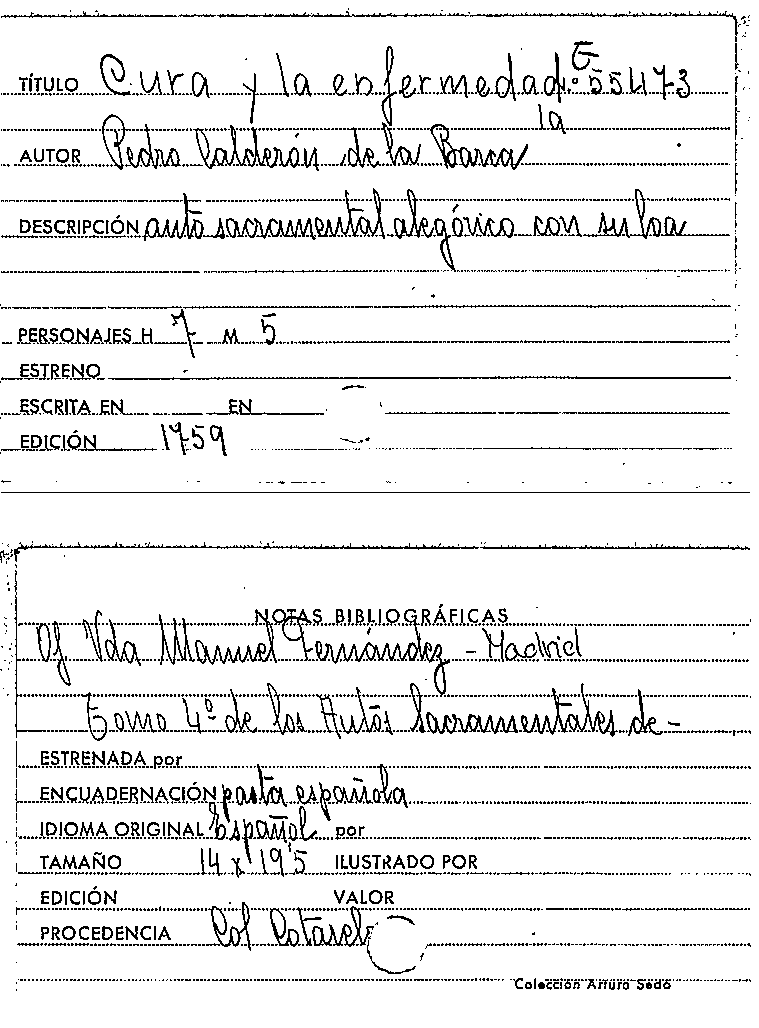 TÍTULO Cura y la enfermedad
AUTOR Pedro Calderón de la Barca
DESCRIPCIÓN auto sacramental alegórico con su loa
PERSONAJES H 7 M 5
ESTRENO
ESCRITA EN EN
EDICIÓN 1759
NOTAS BIBLIOGRÁFICAS
Of Vda Manuel Fernández - Madrid
Tomo 4º de los Autos Sacramentales de -
ESTRENADA por
ENCUADERNACIÓN pasta española
IDIOMA ORIGINAL Español por
TAMAÑO 14 x 19'5 ILUSTRADO POR
EDICIÓN VALOR
PROCEDENCIA Col Cotarelo
Colección Arturo Sedó